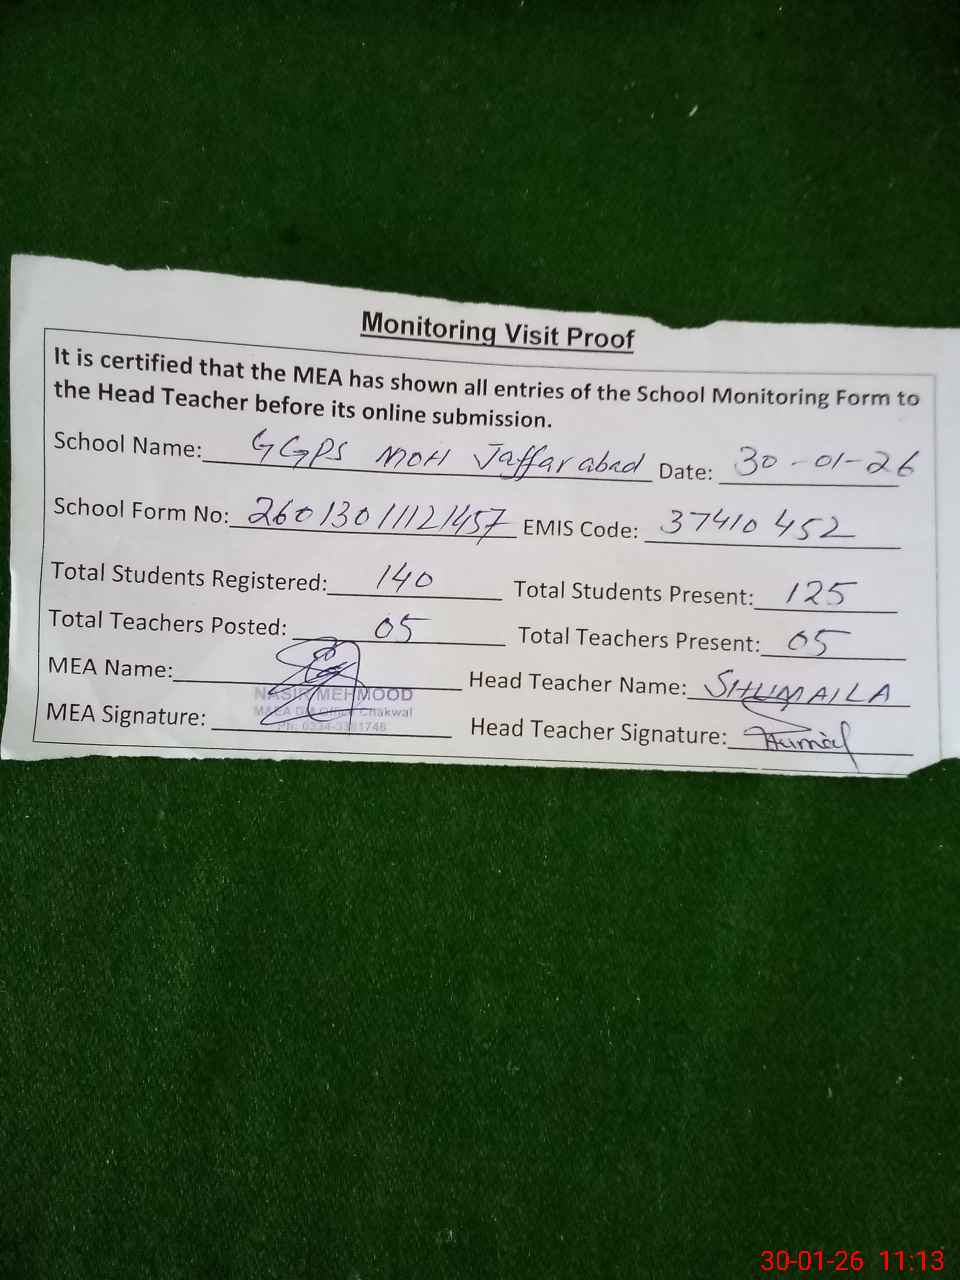 Monitoring Visit Proof
It is certified that the MEA has shown all entries of the School Monitoring Form to
the Head Teacher before its online submission.
School Name: GGPS MOH Jaffar abad Date: 30-01-26
School Form No: 26013011121457 EMIS Code: 37410452
Total Students Registered: 140 Total Students Present: 125
Total Teachers Posted: 05 Total Teachers Present: 05
MEA Name: Head Teacher Name: SHUMAILA
NASIR MEHMOOD
Chakwal
MEA Signature: Head Teacher Signature:
30-01-26 11:13